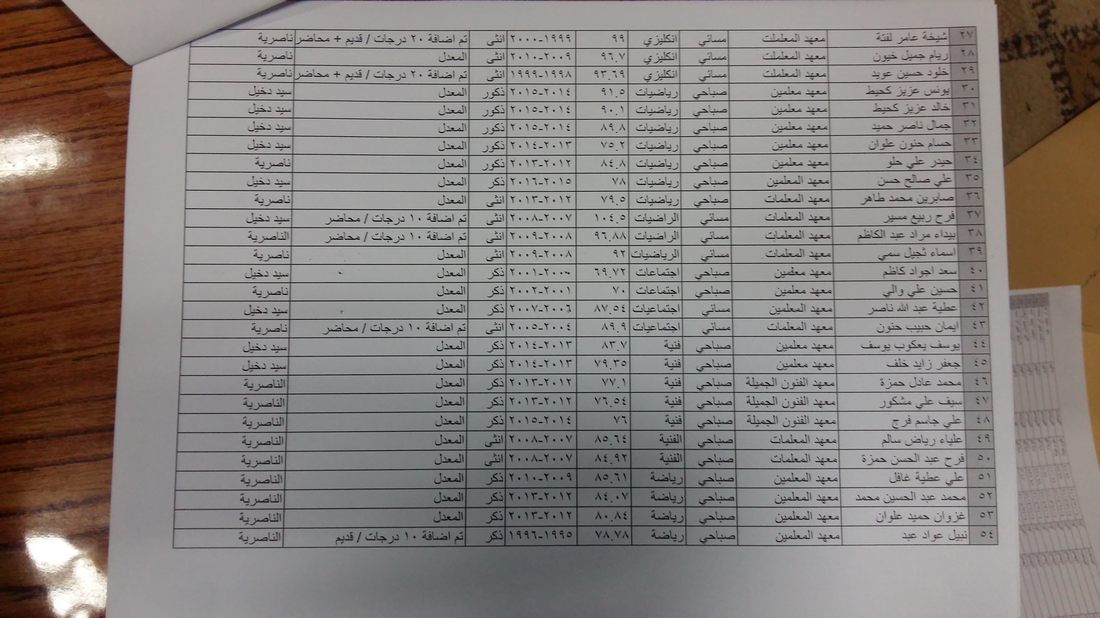 ٢٧ شيخة عامر لفتة معهد المعلملت مسائي انكليزي ٩٩ ١٩٩٩-٢٠٠٠ انثى تم اضافة ٢٠ درجات / قديم + محاضر ناصرية
٢٨ ريام جميل خيون معهد المعلملت مسائي انكليزي ٩٦.٧ ٢٠٠٩-٢٠١٠ انثى المعدل ناصرية
٢٩ خلود حسين عويد معهد المعلملت مسائي انكليزي ٩٣.٦٩ ١٩٩٨-١٩٩٩ انثى تم اضافة ٢٠ درجات / قديم + محاضر ناصرية
٣٠ يونس عزيز كحيط معهد معلمين صباحي رياضيات ٩١.٥ ٢٠١٤-٢٠١٥ ذكور المعدل سيد دخيل
٣١ خالد عزيز كحيط معهد معلمين صباحي رياضيات ٩٠.١ ٢٠١٤-٢٠١٥ ذكور المعدل سيد دخيل
٣٢ جمال ناصر حميد معهد معلمين صباحي رياضيات ٨٩.٨ ٢٠١٤-٢٠١٥ ذكور المعدل سيد دخيل
٣٣ حسام حنون علوان معهد معلمين صباحي رياضيات ٧٥.٢ ٢٠١٣-٢٠١٤ ذكور المعدل سيد دخيل
٣٤ حيدر علي حلو معهد معلمين صباحي رياضيات ٨٤.٨ ٢٠١٢-٢٠١٣ ذكور المعدل ناصرية
٣٥ علي صالح حسن معهد المعلمين صباحي رياضيات ٧٨ ٢٠١٥-٢٠١٦ ذكر المعدل سيد دخيل
٣٦ صابرين محمد طاهر معهد المعلمات صباحي رياضيات ٧٩.٥ ٢٠١٢-٢٠١٣ انثى المعدل ناصرية
٣٧ فرح ربيع مسير معهد المعلمات مسائي الراضيات ١٠٤.٥ ٢٠٠٧-٢٠٠٨ انثى تم اضافة ١٠ درجات / محاضر سيد دخيل
٣٨ بيداء مراد عبد الكاظم معهد المعلمات مسائي الراضيات ٩٦.٨٨ ٢٠٠٨-٢٠٠٩ انثى تم اضافة ١٠ درجات / محاضر الناصرية
٣٩ اسماء ثجيل سمي معهد المعلمات مسائي الرياضيات ٩٢ ٢٠٠٨-٢٠٠٩ انثى المعدل ناصرية
٤٠ سعد اجواد كاظم معهد معلمين صباحي اجتماعات ٦٩.٧٢ ٢٠٠٠-٢٠٠١ ذكر المعدل سيد دخيل
٤١ حسين علي والي معهد معلمين صباحي اجتماعات ٧٠ ٢٠٠١-٢٠٠٢ ذكر المعدل ناصرية
٤٢ عطية عبد الله ناصر معهد المعلمين مسائي اجتماعيات ٨٧.٥٤ ٢٠٠٦-٢٠٠٧ ذكر المعدل سيد دخيل
٤٣ ايمان حبيب حنون معهد المعلمات مسائي اجتماعيات ٨٩.٩ ٢٠٠٤-٢٠٠٥ انثى تم اضافة ١٠ درجات / محاضر ناصرية
٤٤ يوسف يعكوب يوسف معهد معلمين صباحي فنية ٨٣.٧ ٢٠١٣-٢٠١٤ ذكر المعدل سيد دخيل
٤٥ جعفر زايد خلف معهد معلمين صباحي فنية ٧٩.٣٥ ٢٠١٣-٢٠١٤ ذكر المعدل سيد دخيل
٤٦ محمد عادل حمزة معهد الفنون الجميلة صباحي فنية ٧٧.١ ٢٠١٢-٢٠١٣ ذكر المعدل الناصرية
٤٧ سيف علي مشكور معهد الفنون الجميلة صباحي فنية ٧٦.٥٤ ٢٠١٢-٢٠١٣ ذكر المعدل الناصرية
٤٨ علي جاسم فرج معهد الفنون الجميلة صباحي فنية ٧٦ ٢٠١٤-٢٠١٥ ذكر المعدل الناصرية
٤٩ علياء رياض سالم معهد المعلمات صباحي الفنية ٨٥.٦٤ ٢٠٠٧-٢٠٠٨ انثى المعدل الناصرية
٥٠ فرح عبد الحسن حمزة معهد المعلمات صباحي الفنية ٨٤.٩٢ ٢٠٠٧-٢٠٠٨ انثى المعدل الناصرية
٥١ علي عطية غافل معهد المعلمين صباحي رياضة ٨٥.٦١ ٢٠٠٩-٢٠١٠ ذكر المعدل الناصرية
٥٢ محمد عبد الحسين محمد معهد المعلمين صباحي رياضة ٨٤.٠٧ ٢٠١٢-٢٠١٣ ذكر المعدل الناصرية
٥٣ غزوان حميد علوان معهد المعلمين صباحي رياضة ٨٠.٨٤ ٢٠١٢-٢٠١٣ ذكر المعدل الناصرية
٥٤ نبيل عواد عبد معهد المعلمين صباحي رياضة ٧٨.٧٨ ١٩٩٥-١٩٩٦ ذكر تم اضافة ١٠ درجات / قديم الناصرية